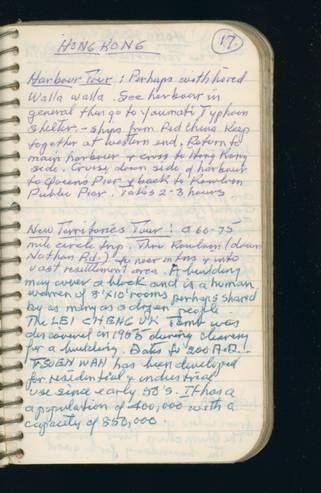 HONG KONG
17.
Harbour Tour: Perhaps with hired
Walla walla. See harbour in
general then go to Yaumati Typhoon
Shelter - ships from Red China keep
together at western end. Return to
main harbour & cross to Hong Kong
side. Cruise down side of harbour
to Queens Pier & back to Kowloon
Public Pier. Takes 2-3 hours
New Territories Tour: a 60-75
mile circle trip. Thru Kowloon (down
Nathan Rd.) to over mtns & into
vast resettlement area. A building
may cover a block and is a human
warren of 8'x10' rooms perhaps shared
by as many as a dozen people.
The LEI CHENG UK Tomb was
discovered in 1955 during clearing
for a building. Dates to 200 A.D.
TSUEN WAN has been developed
for residential & industrial
use since early 50's. It has a
a population of 400,000 with a
capacity of 850,000.